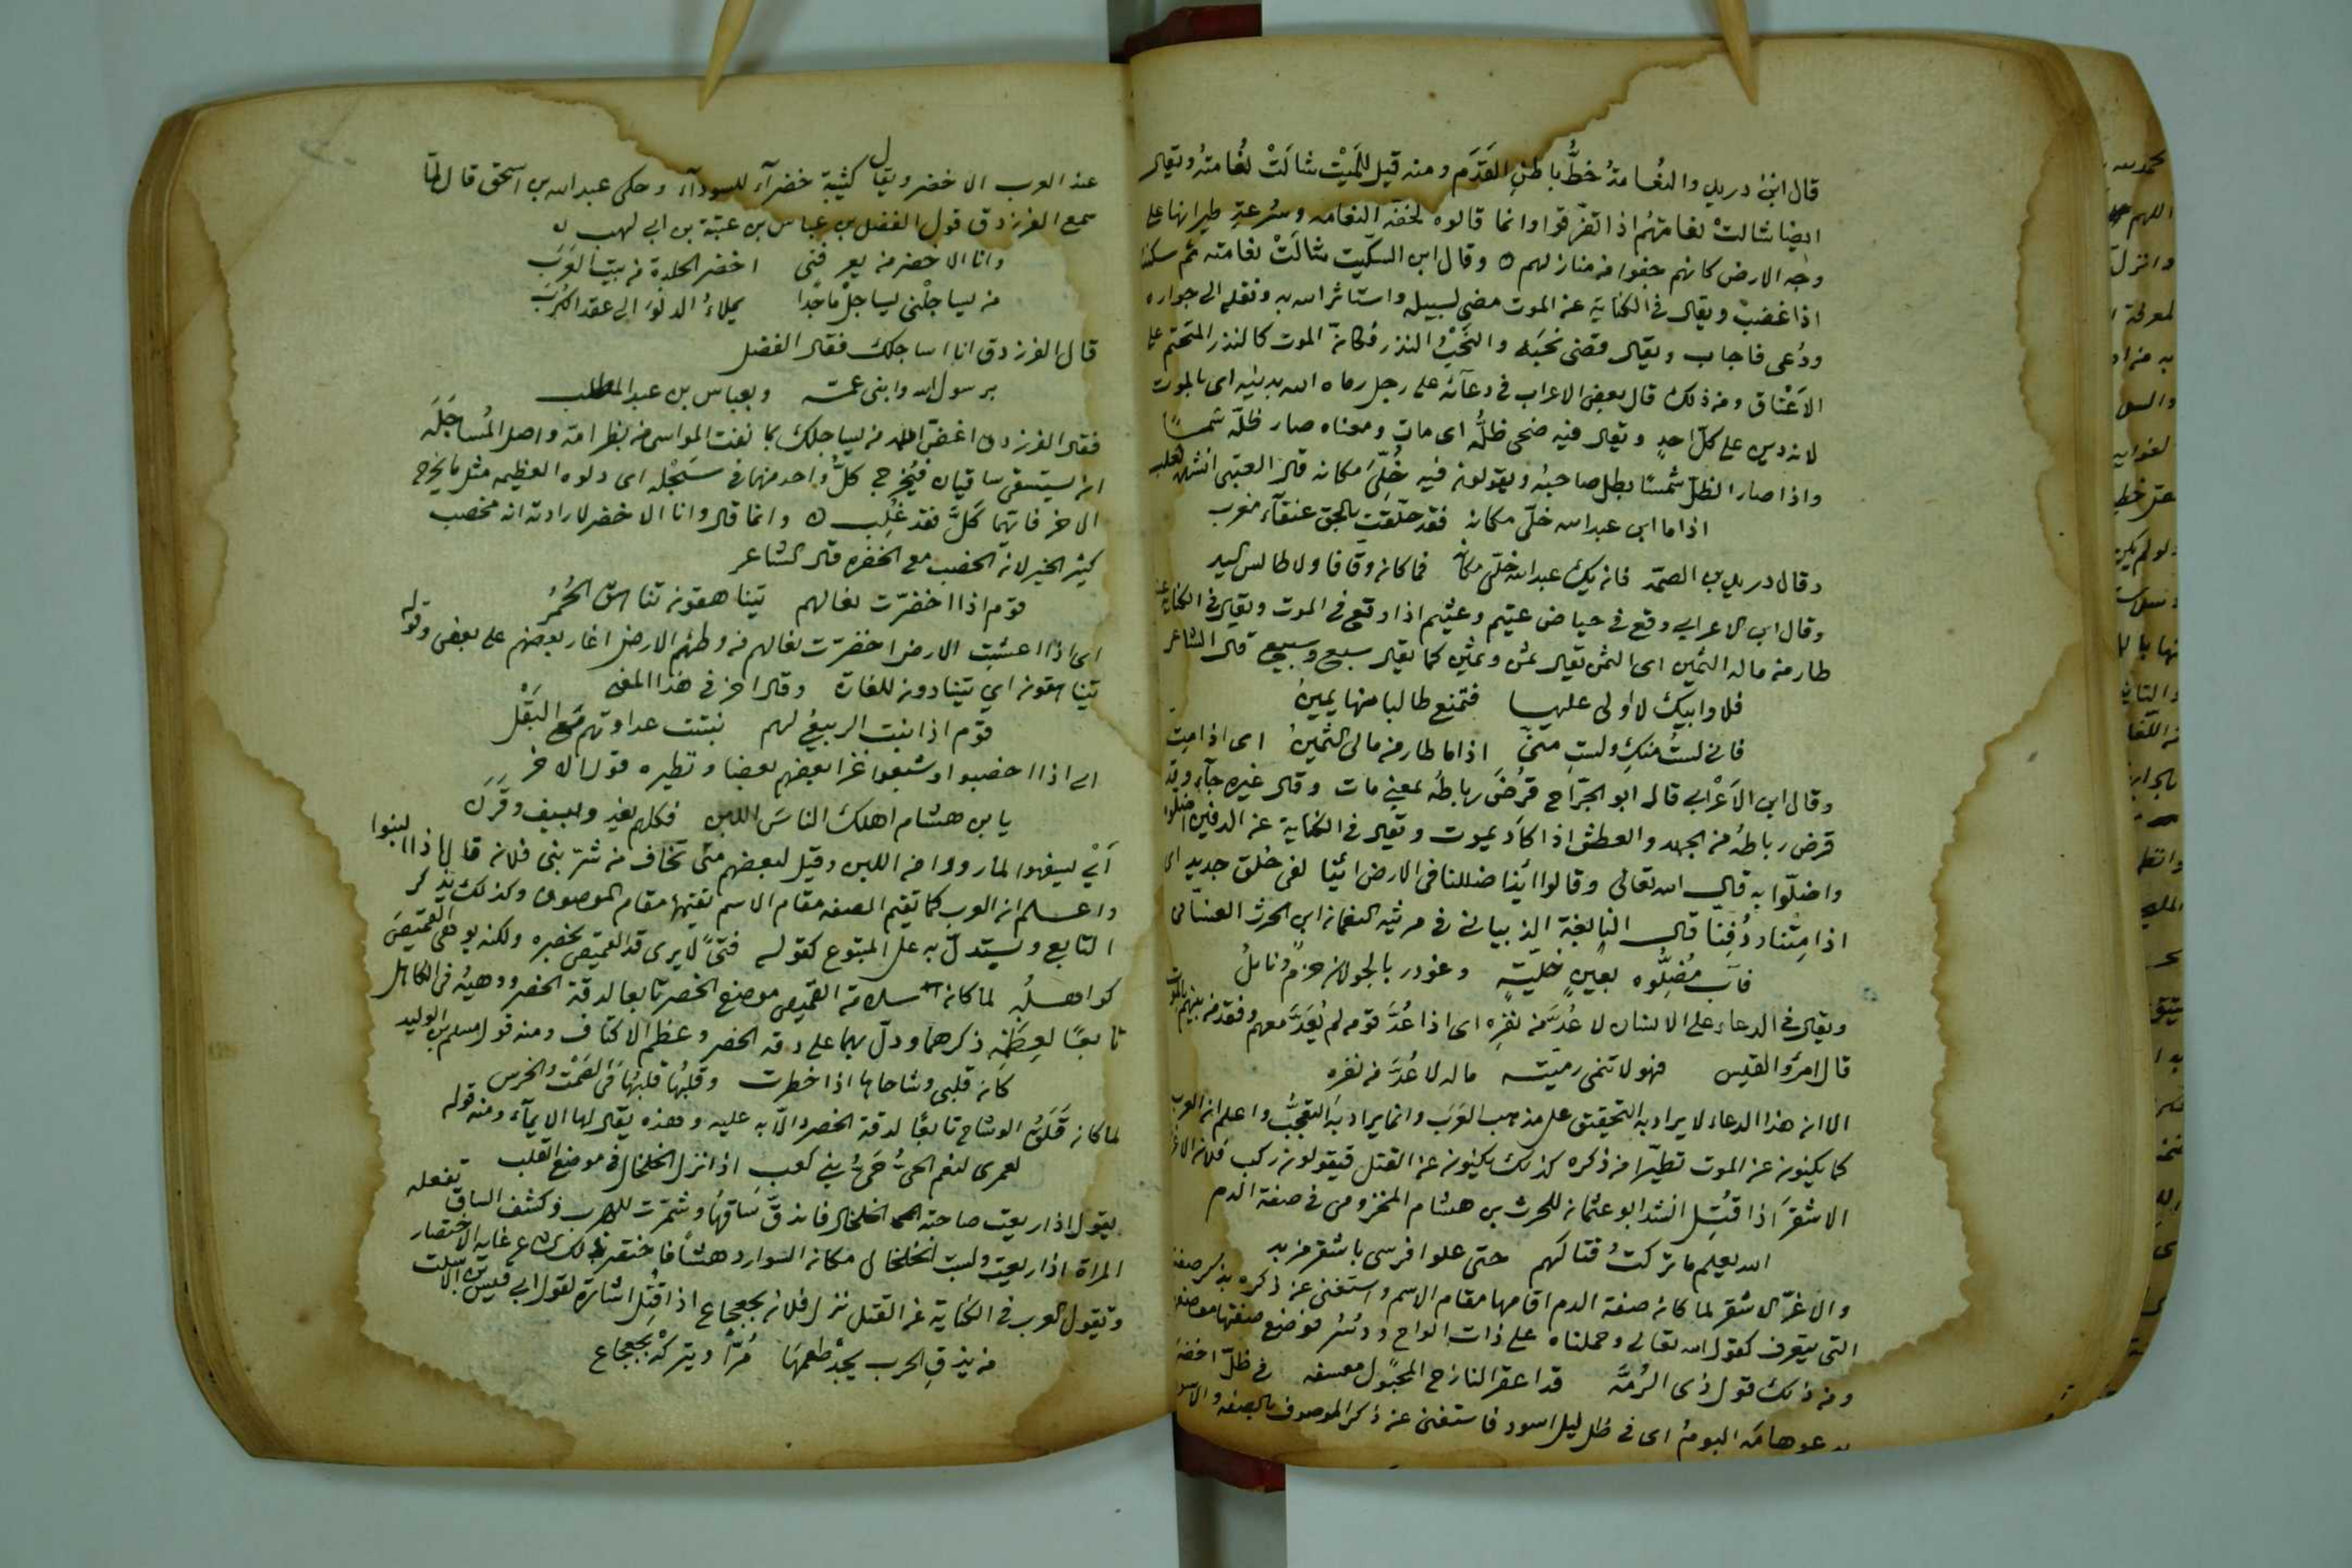 قال ابن دريد والنعامة خطُّ باطن القَدَم ومنه قيل للميّت شالَتْ نعامتهُ ويقال
ايضا شالتْ نعامتهُم اذا تفرّقوا وانما قالوه لخفّة النعامه وسُرعةِ طيرانها على
وجه الارض كانهم خفوا من منازلهم ٥ وقال ابن السكّيت شالَتْ نعامته ثم سكن
اذا غضبَ ويقال في الكناية عن الموت مضى لسبيله واستاثر الله به ونقله الى جواره
ودُعى فاجاب ويقال قضى نحبَه والنَحْبُ النذر فكانّ الموت كالنذر المتحتم على
الاَعْناق ومن ذلك قال بعض الاعراب في دعآئه على رجل رماه الله بدَينِه اى بالموت
لانه دين على كلّ احدٍ ويقال فيه ضحى ظلُّه اى مات ومعناه صار ظلّه شمسًا
واذا صار الظلّ شمسًا بطل صاحبهُ ويقولون فيه خُلّىَ مكانه قال العتبى انشدنا ثعلب
اذا ما ابن عبد الله خلّى مكانه فقد حلّقت بالجو عنقآء مغرب
وقال دريد بن الصمّه فان يك عبد الله خلّى مكانه فما كان وقافا ولا طايش اليد
وقال ابن الاعرابى وقع في حياض عتيم وعثيم اذا وقع في الموت ويقال في الكناية عنه
طار من ماله الثمين اى الثمن يقال ثمن وثمين كما يقال سبع وسبيع قال الشاعر
فلا وابيك لا اولى عليها فتمنع طالبا منها يمينُ
فانى لستُ منكِ ولستِ منّى اذا ما طار من مالى الثمينُ اى اذا متّ
وقال ابن الاَعْرابى قال ابو الجرّاح قرَضَ رباطَه بمعنى مات وقال غيره جآء وقد
قرض رباطه من الجهد والعطش اذا كاَد يموت ويقال في الكناية عن الدفين اضلّوا
واضلّوا به قال الله تعالى وقالوا ائذا ضللنا في الارض ائنّا لفى خلق جديد اى
اذا مِتْنا ودُفِنّا قال النابغة الذبيانى في مرثية النعمان ابن الحرث الغسّانى
فآب مُضِلُّوه بعينٍ خليّةٍ وغودر بالجولان حزمٌ ونائلُ
ويقال في الدعاء على الانسان لا عُدَّ من نفرِه اى اذا عُدَّ قومه لم يُعَدَّ معهم وفقد من بينهم بالموت
قال امرؤ القيس فهو لا تنمى رميّته ماله لا عُدَّ من نفره
الا ان هذا الدعاء لا يراد به التحقيق على مذهب العَرَب وانما يراد به التعجُّب واعلم ان العرب
كما يكنون عن الموت تطيّرا من ذكره كذلك يكنون عن القتل فيقولون ركب فلان الاغرّ
الاشقرَ اذا قُتِل انشد ابو عثمان للحرث بن هشام المخزومى في صفة الدم
الله يعلم ما تركتُ قتالَهم حتى علوا فرسى باشقر مزبد
والاغرّ الاشقر لما كان صفة الدم اقامها مقام الاسم واستغنى عن ذكره بذكر صفته
التى يعرف كقول الله تعالى وحملناه على ذات الواح ودُسُر فوضع صفتها موضعها
ومن ذلك قول ذى الرُمَّه قد اعقر النازح المجهول معسفه في ظلّ اخضر
يدعو هامَه البومُ اى في ظل ليل اسود فاستغنى عن ذكر الموصوف بالصفه والاسود
عند العرب الاخضر ويقال كتيبة خضرآء للسودآء وحكى عبد الله بن اسحق قال لمّا
سمع الفرزدق قول الفضل بن عباس بن عتبة بن ابى لهب ٥
وانا الاخضر من يعرفنى اخضر الجلدة من بيت العَرَب
من يساجلْنى يساجلْ ماجدًا يملاءُ الدلوَ الى عقد الكَرَب
قال الفرزدق انا اساجلك فقال الفضل
برسول الله وابنى عمّه وبعباس بن عبد المطلب
فقال الفرزدق اغضّ الله من يساجلك بما نفت المواسى من بظر امّه واصل المُساجَلَة
ان يستسقى ساقيان فيُخرج كلُّ واحد منهما في سَجْله اى دلوه العظيمه مثل ما يخرج
الاخر فايهما كَلَّ فقد غُلِب ٥ وانما قال وانا الاخضر لارادته انه مخصب
كثير الخير لانّ الخصب مع الخضره قال الشاعر
قوم اذا اخضرّت نعالهم يتناهقون تناهق الحُمُر
اى اذا اعشبت الارض اخضرّت نعالهم من وطئهم الارض اغار بعضهم على بعض وقوله
يتناهقون اى يتنادون للغارة وقال اخر في هذا المعنى
قوم اذا نبت الربيعُ لهم نبتت عداوتهم مَع البَقْل
اى اذا اخصبوا وشبعوا غزا بعضهم بعضا ونظيره قول الاخر
يا بن هشام اهلك الناسَ اللبن فكلهم يغدو بسيف وقَرَن
اَىْ ليسفهوا لما رووا من اللبن وقيل لبعضهم متى تخاف من شرّ بنى فلان قال اذا البنوا
واعلم ان العرب كما تقيم الصفه مقام الاسم تقيمها مقام الموصوف وكذلك يذكر
التابع ويستدلّ به على المتبوع كقوله فتًى لا يرى قدّ القميص بخصره ولكنه يوهى القميصَ
كواهلُه لما كان سلامة القميص موضع الخصر تابعا لدقة الخصر ووهيُه في الكاهل
تابعًا لعِظَمِه ذكرهما ودلّ بهما على دقة الخصر وعظم الاكتاف ومنه قول مسلم بن الوليد
كانّ قلبى وشاحاها اذا خطرت وقلبُها قلبُها في الصَمْت والخرس
لما كان قَلَق الوشاح تابعًا لدقة الخصر دالّا به عليه وهذه يقال لها الايمآء ومنه قوله
لعمرى لنعم الحىُّ حَىُّ بنى كعب اذا نزل الخلخال في موضع القلب
يقول اذا ريعت صاحبة الخلخال فابدَتْ سَاقها وشمّرت للهرب وكشف الساق تفعله
المراة اذا ريعت ولبست الخلخال مكان السوار دهشًا فاختصر ذلك كله على غاية الاختصار
وتقول العرب في الكناية عن القتل نزل فلان بجعجاع اذا قُتِل اشارة لقول ابى قيس بن الاسلت
من يذقِ الحرب يجدْ طعمَها مُرًّا ويتركْه بجعجاع